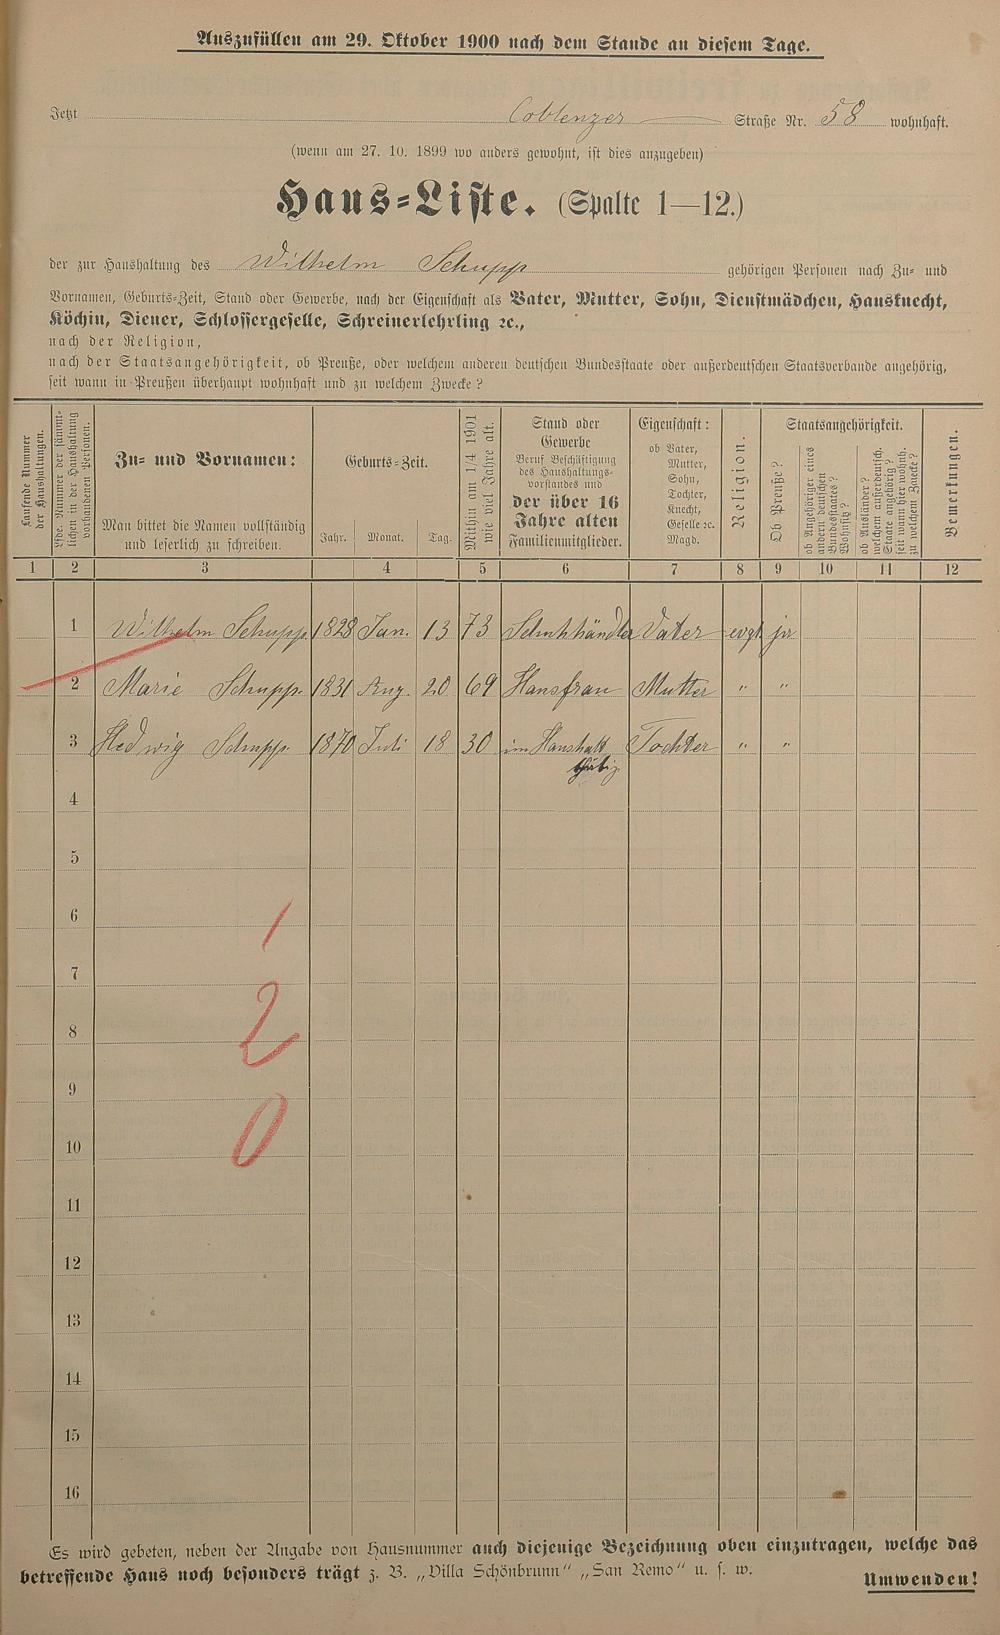 Auszufüllen am 29. Oktober 1900 nach dem Stande an diesem Tage.
Jetzt Coblenzer Straße Nr. 58 wohnhaft.
(wenn am 27. 10. 1899 wo anders gewohnt, ist dies anzugeben)
Haus-Liste. (Spalte 1—12.)
der zur Haushaltung des Wilhelm Schupp gehörigen Personen nach Zu- und
Vornamen, Geburts-Zeit, Stand oder Gewerbe, nach der Eigenschaft als Vater, Mutter, Sohn, Dienstmädchen, Hausknecht,
Köchin, Diener, Schlossergeselle, Schreinerlehrling ꝛc.,
nach der Religion,
nach der Staatsangehörigkeit, ob Preuße, oder welchem anderen deutschen Bundesstaate oder außerdeutschen Staatsverbande angehörig,
seit wann in Preußen überhaupt wohnhaft und zu welchem Zwecke?
Laufende Nummer
der Haushaltungen.
Lfde. Nummer der sämmt-
lichen in der Haushaltung
vorhandenen Personen.
Zu- und Vornamen:
Man bittet die Namen vollständig
und leserlich zu schreiben.
Geburts-Zeit.
Jahr. Monat. Tag.
Mithin am 1/4 1901
wie viel Jahre alt.
Stand oder
Gewerbe
Beruf Beschäftigung
des Haushaltungs-
vorstandes und
der über 16
Jahre alten
Familienmitglieder.
Eigenschaft:
ob Vater,
Mutter,
Sohn,
Tochter,
Knecht,
Geselle ꝛc.
Magd.
Religion.
Staatsangehörigkeit.
Ob Preuße?
ob Angehöriger eines
andern deutschen
Bundesstaates?
Wohnsitz?
ob Ausländer?
welchem außerdeutsch.
Staate angehörig?
seit wann hier wohnh.
zu welchem Zwecke?
Bemerkungen.
1 2 3 4 5 6 7 8 9 10 11 12
1 Wilhelm Schupp. 1828 Jan. 13 73 Schuhhändler Vater evgl. ja
2 Marie Schupp. 1831 Aug. 20 69 Hausfrau Mutter " "
3 Hedwig Schupp. 1870 Juli 18 30 im Haushalt Tochter " "
thätig.
4
5
6
1
7
8
2
9
10
0
11
12
13
14
15
16
Es wird gebeten, neben der Angabe von Hausnummer auch diejenige Bezeichnung oben einzutragen, welche das
betreffende Haus noch besonders trägt z. B. „Villa Schönbrunn" „San Remo" u. s. w.
Umwenden!